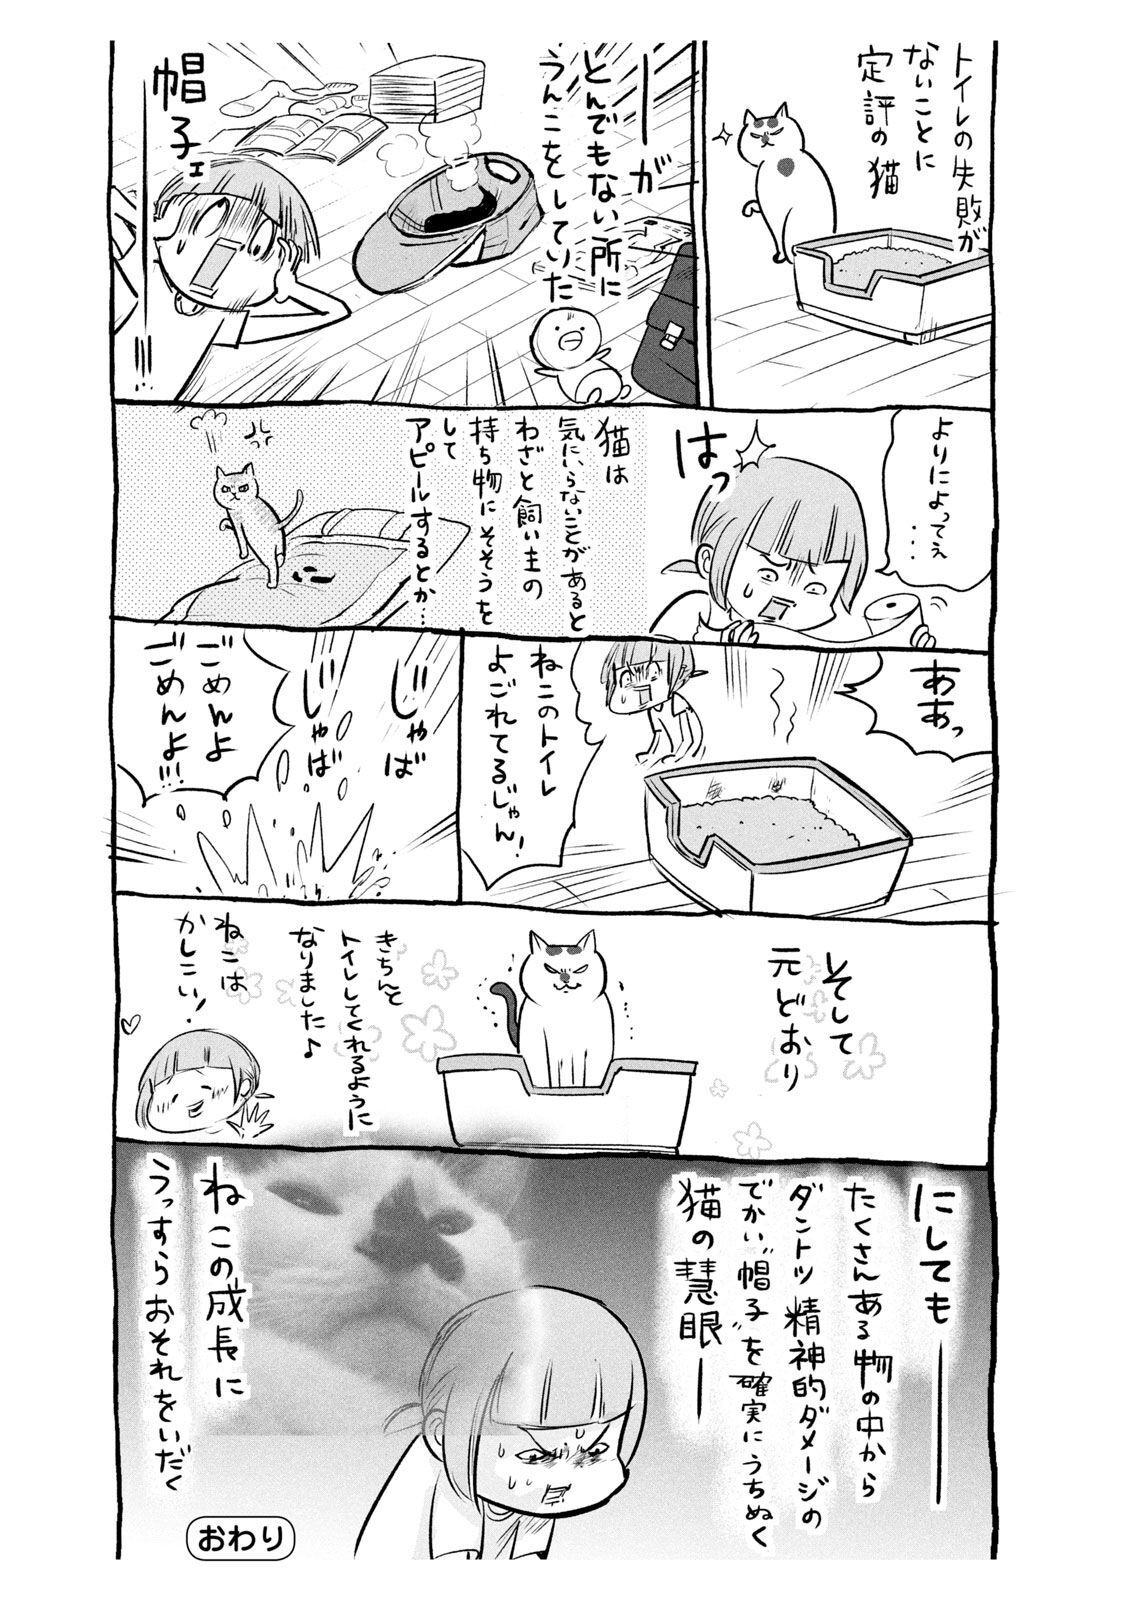 トイレの失敗が
ないことに
定評の猫
――が
とんでもない所に
うんこをしていた
帽子ェ
――!!!
よりによってぇ
・・・
はっ
猫は
気にいらないことがあると
わざと飼い主の
持ち物にそそうを
して
アピールするとか…
ああっ
ねこのトイレ
よごれてるじゃん!
じゃば
じゃば
ごめんよ
ごめんよ!!!
そして
元どおり
きちんと
トイレしてくれるように
なりました♪
ねこは
かしこい!
にしても――
たくさんある物の中から
ダントツ精神的ダメージの
でかい“帽子”を確実にうちぬく
猫の慧眼――
ねこの成長に
うっすらおそれをいだく
おわり